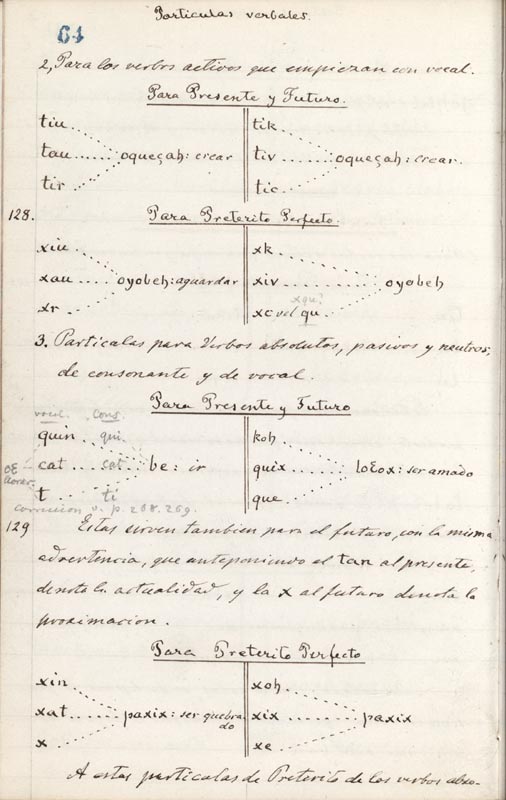 Particulas verbales.
64
2, Para los verbos activos que empiezan con vocal.
Para Presente y Futuro.
tiu tik
tau..... oqueçah: crear tiv ........ oqueçah: crear.
tir tic
128. Para Preterito Perfecto.
xiu xk
xau .... oyobeh: aguardar xiv ........ oyobeh
xqu?
xr xc vel qu
3. Particalas para Verbos absolutos, pasivos y neutros,
de consonante y de vocal.
Para Presente y Futuro
vocal. Cons.
quin qui koh
cat cat be: ir quix ....... loɛox: ser amado
oɛ
llorar.
t ti que
correccion v. p. 268. 269.
129 Estas sirven tambien para el futuro, con la misma
advertencia, que anteponiendo el tan al presente,
denota la actualidad, y la x al futuro denota la
proximacion.
Para Preterito Perfecto
xin xoh
xat ...... paxix: ser quebra- xix ........ paxix
do
x xe
A estas particulas de Preterito de los verbos abso-